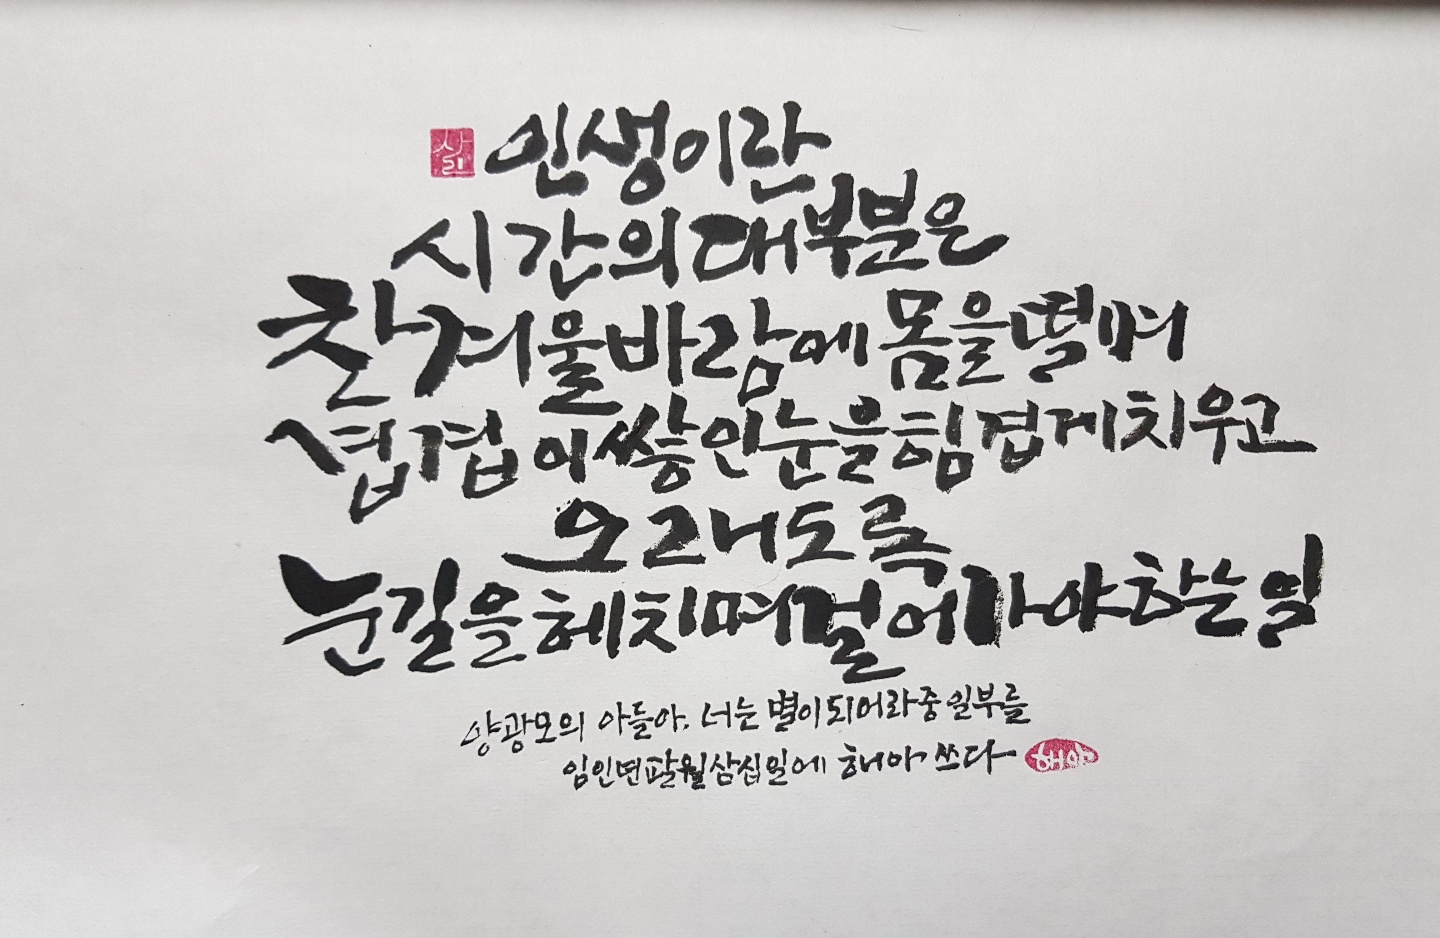 인생이란
시간의 대부분은
찬 겨울바람에 몸을 떨며
겹겹이 쌓인 눈을 힘겹게 치우고
오래도록
눈길을 헤치며 걸어가야 하는 일
양광모의 아들아, 너는 별이 되어라 중 일부를
임인년 팔월 삼십일에 해야 쓰다
해야